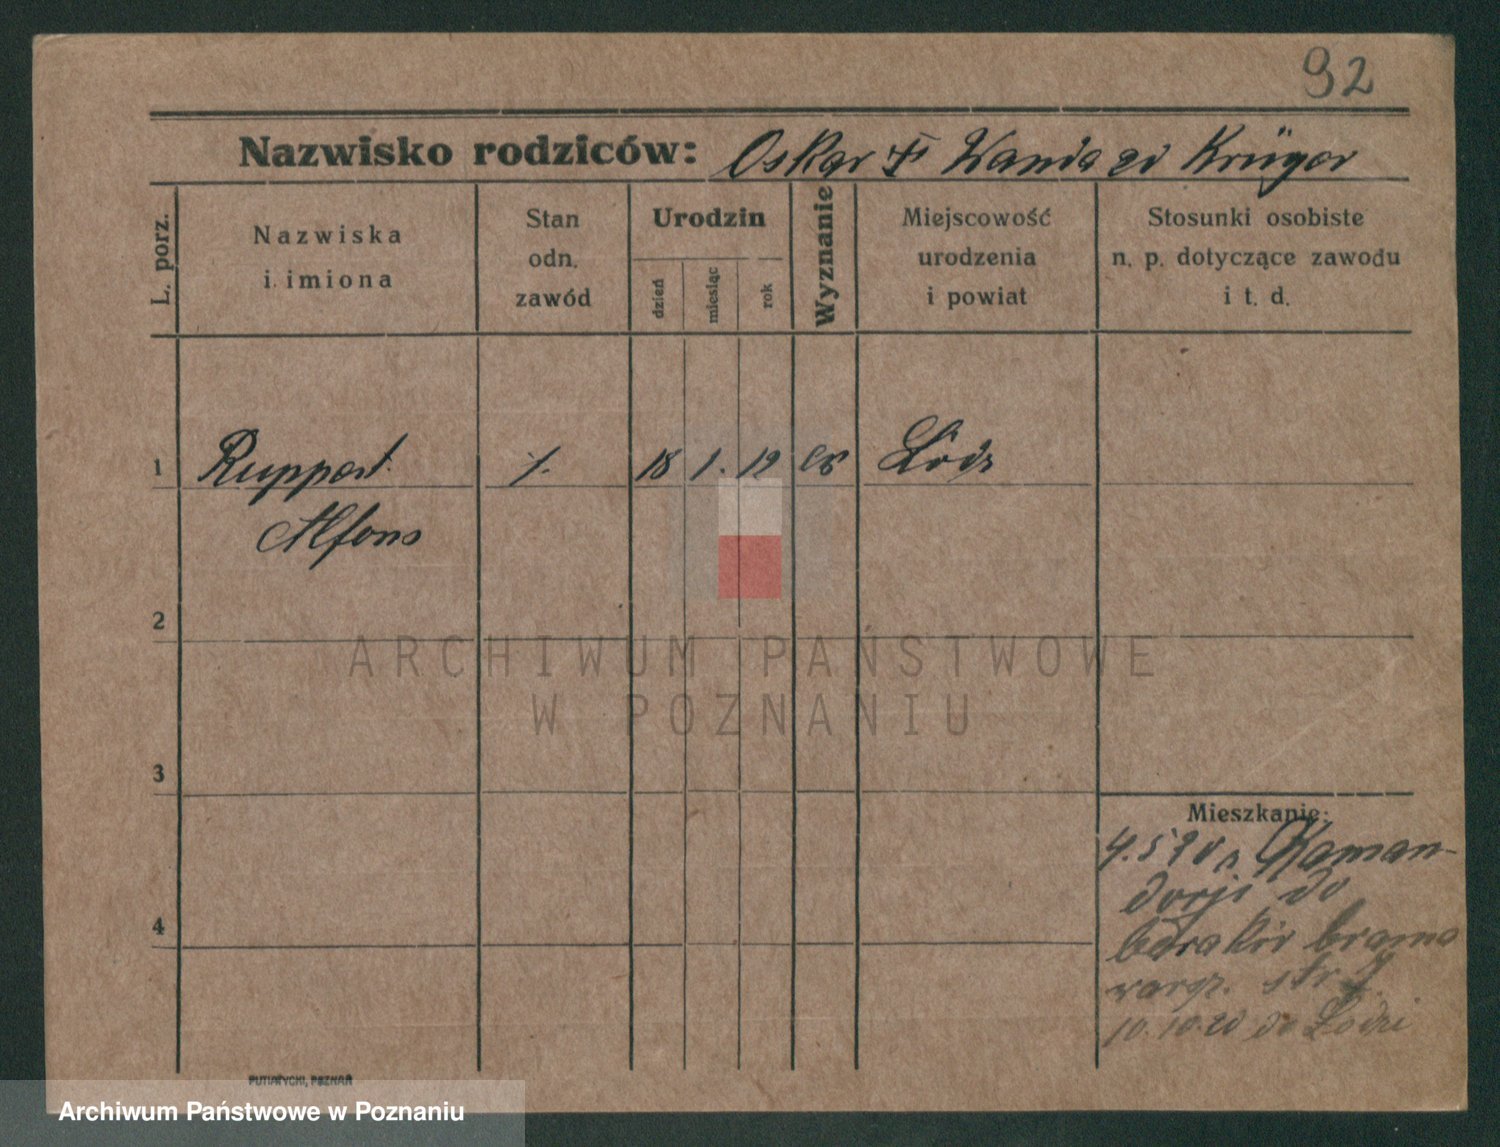 92
Nazwisko rodziców: Oskar Wanda Krüger
L. porz.
Nazwiska
i imiona
Stan
odn.
zawód
Urodzin
dzień
miesiąc
rok
Wyznanie
Miejscowość
urodzenia
i powiat
Stosunki osobiste
n. p. dotyczące zawodu
i t. d.
1 Ruppert 18 1. 19 ew Łódź
Alfons
2
ARCHIWUM PAŃSTWOWE
W POZNANIU
3
Mieszkanie:
Koman-
dorji do
baraków brama
4
warsz.
10.10.20 do Łodzi
PUTIATYCKI, POZNAŃ
Archiwum Państwowe w Poznaniu